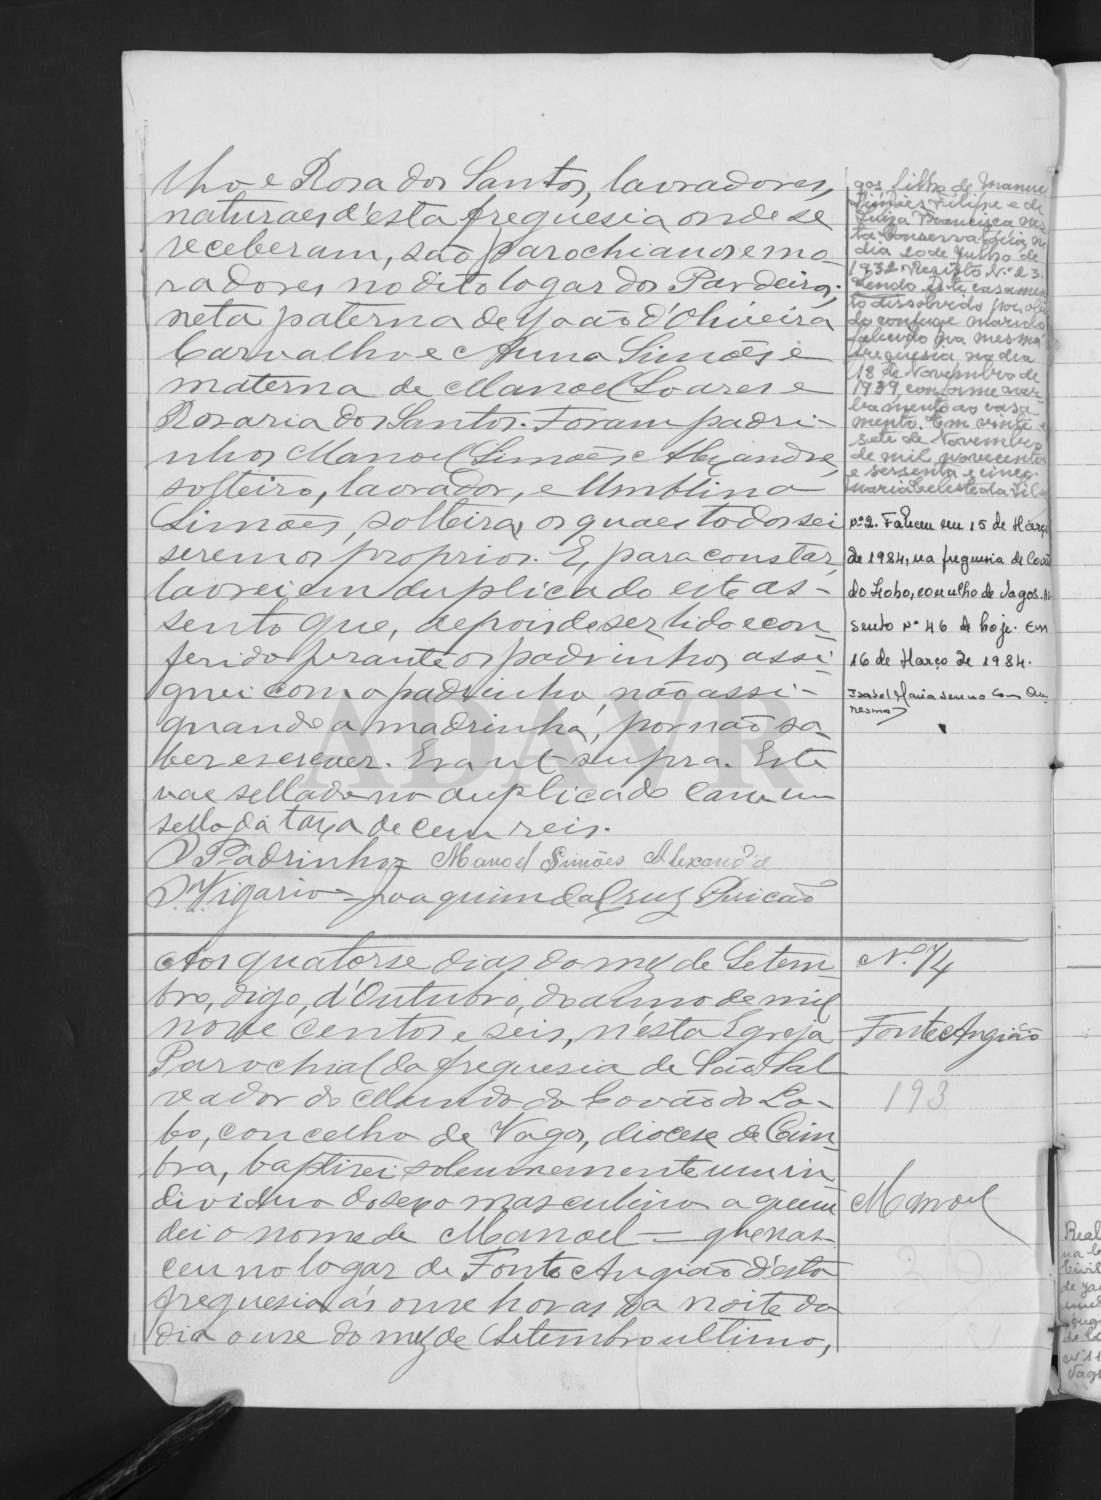 lho e Rosa dos Santos, lavradores,
naturaes d'esta freguesia onde se
receberam, são parochianos e mo-
radores no dito logar dos Pardeiros;
neta paterna de João d'Oliveira
Carvalho e Anna Simões e
materna de Manoel Soares e
Rosaria dos Santos. Foram padri-
nhos Manoel Simões Alexandre,
solteiro, lavrador, e Umblina
Simões, solteira, os quaes todos sei
serem os proprios. E, para constar,
lavrei em duplicado este as-
sento que, depois de ser lido e con-
ferido perante os padrinhos, assi-
gnei com o padrinho, não assi-
gnando a madrinha, por não sa-
ber escrever. Era ut supra. Este
vae sellado no duplicado com um
sello da taxa de cem reis.
O Padrinho = Manoel Simões Alexandre
O Vigario = Joaquim da Cruz
gos filho de Manuel
Simões Filipe e de
Luiza Francisca nes-
ta Conservatória no
dia 20 de Junho de
1932 Registo N.º 23.
Sendo este casamen-
to dissolvido por
do conjuge marido
falecido na mesma
freguesia no dia
18 de Novembro de
1939, conforme aver-
bamento ao casa-
mento. Em vinte e
sete de Novembro
de mil novecentos
e sessenta e cinco.
Maria Celeste da Silva
Nº 2. Faleceu em 15 de Março
de 1984, na freguesia de Covão
do Lobo, concelho de Vagos. As-
sento Nº 46 de hoje. Em
16 de Março de 1984.
Isabel Maria
Aos quatorse dias do mez de Setem-
bro, digo, d'Outubro, do anno de mil
nove centos e seis, n'esta Egreja
Parochial da freguesia de São Sal-
vador do Mundo do Covão do Lo-
bo, concelho de Vagos, diocese de Coim-
bra, baptisei solemnemente um in-
dividuo do sexo masculino a quem
dei o nome de Manoel = que nas-
ceu no logar de Fonte Angião d'esta
freguesia ás onse horas da noite do
dia onse do mez de Setembro ultimo,
N.º 74
Fonte Angião
193
Manoel